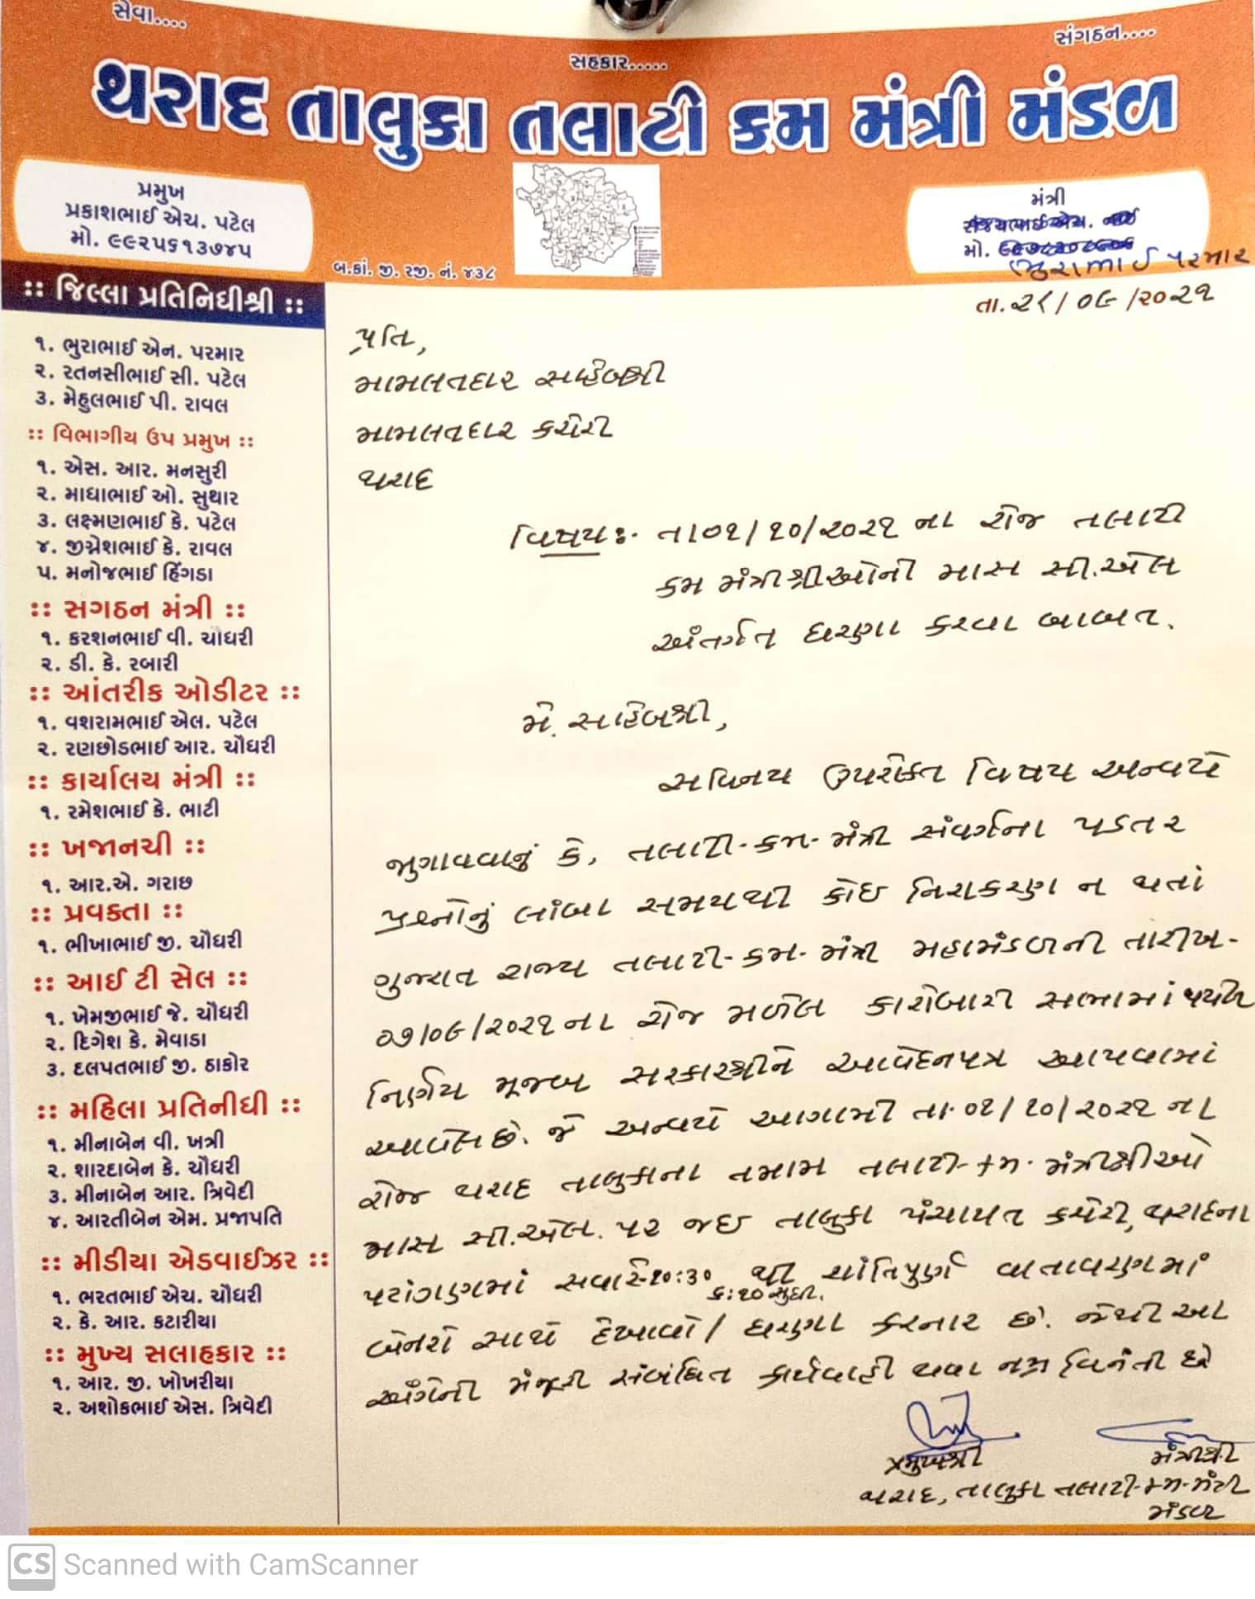 સેવા....
સહકાર.....
સંગઠન....
થરાદ તાલુકા તલાટી કમ મંત્રી મંડળ
પ્રમુખ
પ્રકાશભાઈ એચ. પટેલ
મો. ૯૯૨૫૬૧૩૭૪૫
બ.કાં. જી. રજી. નં. ૪૩૮
મંત્રી
મો.
ભુરાભાઈ પરમાર
તા. ૨૮/૦૯/૨૦૨૧
:: જિલ્લા પ્રતિનિધીશ્રી ::
૧. ભુરાભાઈ એન. પરમાર
૨. રતનસીભાઈ સી. પટેલ
૩. મેહુલભાઈ પી. રાવલ
:: વિભાગીય ઉપ પ્રમુખ ::
૧. એસ. આર. મનસુરી
૨. માધાભાઈ ઓ. સુથાર
૩. લક્ષ્મણભાઈ કે. પટેલ
૪. જીગ્નેશભાઈ કે. રાવલ
૫. મનોજભાઈ હિંગડા
:: સંગઠન મંત્રી ::
૧. કરશનભાઈ વી. ચૌધરી
૨. ડી. કે. રબારી
:: આંતરીક ઓડીટર ::
૧. વશરામભાઈ એલ. પટેલ
૨. રણછોડભાઈ આર. ચૌધરી
:: કાર્યાલય મંત્રી ::
૧. રમેશભાઈ કે. ભાટી
:: ખજાનચી ::
૧. આર.એ. ગરાછ
:: પ્રવક્તા ::
૧. ભીખાભાઈ જી. ચૌધરી
:: આઈ ટી સેલ ::
૧. ખેમજીભાઈ જે. ચૌધરી
૨. દિગેશ કે. મેવાડા
૩. દલપતભાઈ જી. ઠાકોર
:: મહિલા પ્રતિનીધી ::
૧. મીનાબેન વી. ખત્રી
૨. શારદાબેન કે. ચૌધરી
૩. મીનાબેન આર. ત્રિવેદી
૪. આરતીબેન એમ. પ્રજાપતિ
:: મીડીયા એડવાઈઝર ::
૧. ભરતભાઈ એચ. ચૌધરી
૨. કે. આર. કટારીયા
:: મુખ્ય સલાહકાર ::
૧. આર. જી. ખોખરીયા
૨. અશોકભાઈ એસ. ત્રિવેદી
પ્રતિ,
મામલતદાર સાહેબશ્રી
મામલતદાર કચેરી
થરાદ
વિષય:- તા૦૧/૧૦/૨૦૨૧ ના રોજ તલાટી
કમ મંત્રીશ્રીઓની માસ સી.એલ
અંતર્ગત ધરણા કરવા બાબત.
મે. સાહેબશ્રી,
સવિનય ઉપરોક્ત વિષય અન્વયે
જણાવવાનું કે, તલાટી-કમ-મંત્રી સંવર્ગના પડતર
પ્રશ્નોનું લાંબા સમયથી કોઇ નિરાકરણ ન થતાં
ગુજરાત રાજ્ય તલાટી-કમ-મંત્રી મહામંડળની તારીખ-
૦૭/૦૯/૨૦૨૧ના રોજ મળેલ કારોબારી સભામાં થયેલ
નિર્ણય મુજબ સરકારશ્રીને આવેદનપત્ર આપવામાં
આવેલ છે. જે અન્વયે આગામી તા.૦૧/૧૦/૨૦૨૧ ના
રોજ થરાદ તાલુકાના તમામ તલાટી-કમ-મંત્રીશ્રીઓ
માસ સી.એલ. પર જઇ તાલુકા પંચાયત કચેરી, થરાદના
પટાંગણમાં સવારે-૧૦:૩૦ થી શાંતિપુર્ણ વાતાવરણમાં
૬:૧૦ સુધી.
બેનરો સાથે દેખાવો/ ધરણા કરનાર છે. જેથી આ
અંગેની મંજૂરી સંબંધિત કાર્યવાહી થવા નમ્ર વિનંતી છે
પ્રમુખશ્રી
મંત્રીશ્રી
થરાદ, તાલુકા તલાટી-કમ-મંત્રી
મંડળ
CS Scanned with CamScanner